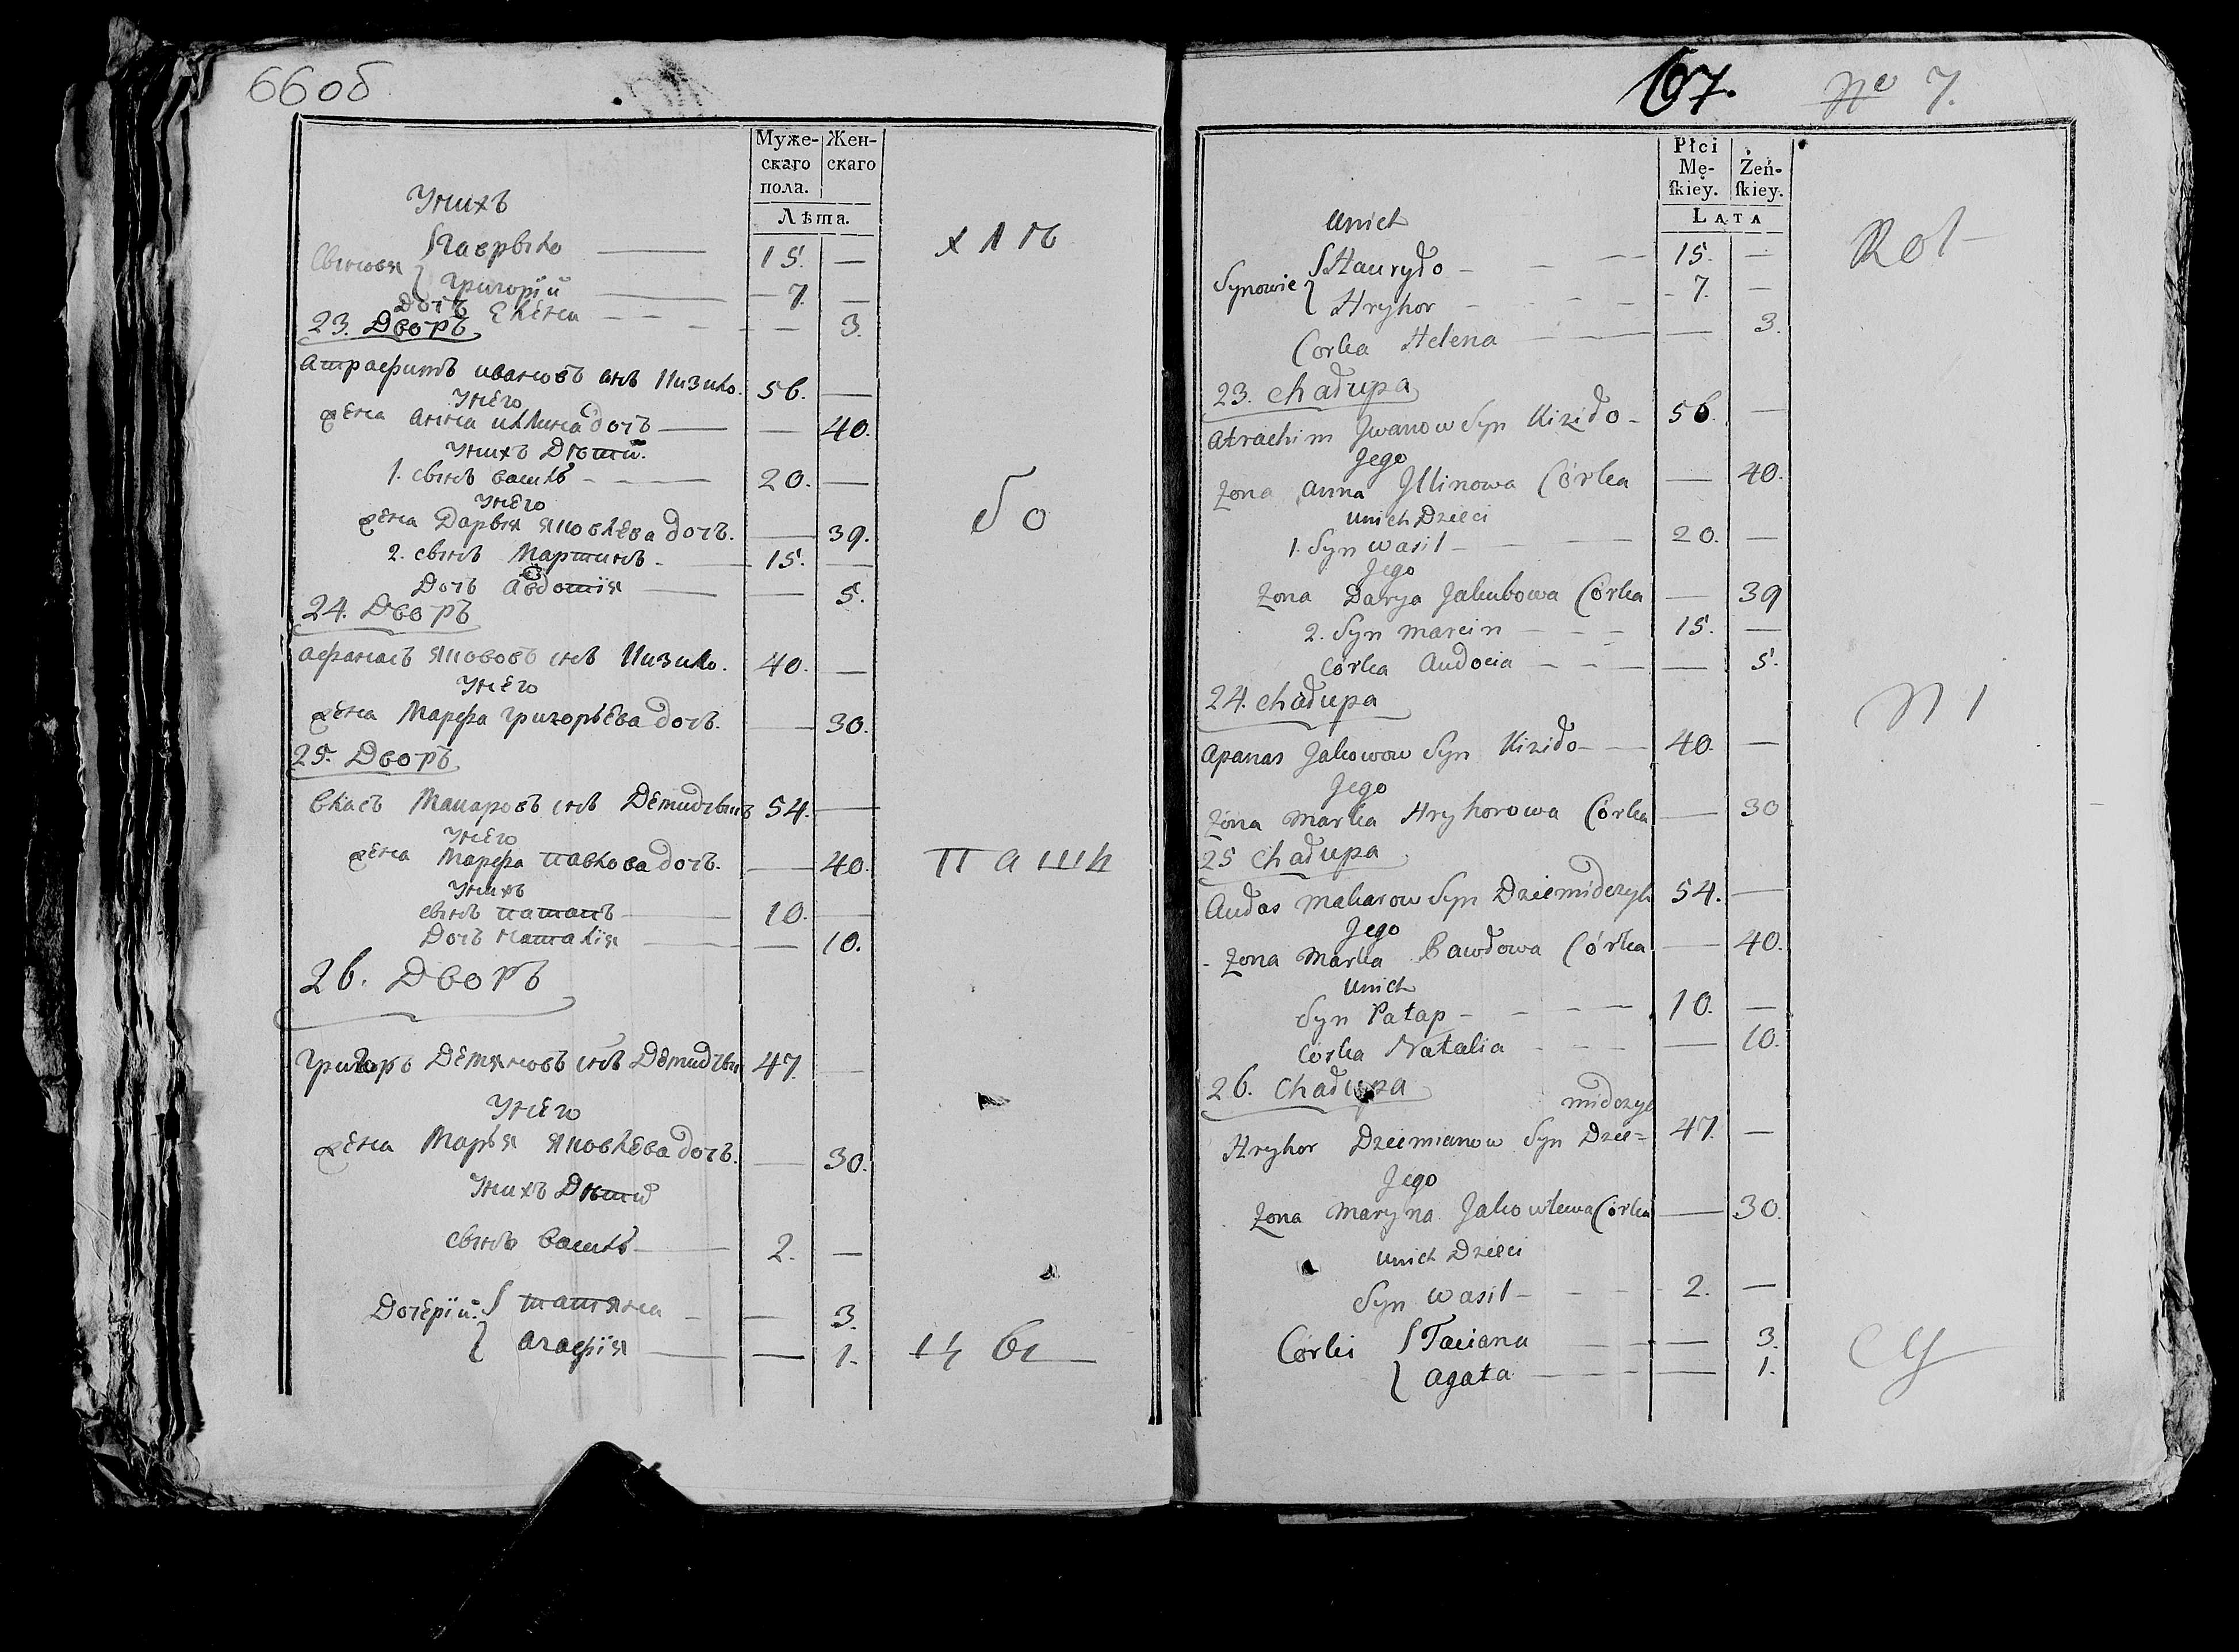 66об
Муже- Жен-
скаго скаго
пола.
Лѣта.
Унихъ
Сыновя { Гаврыло 15. —
Григорій 7. —
Дочь Елена — 3.
23. Дворъ
Атрафимъ ивановъ снъ Кизило. 56. —
Унего
жена Анна иллина дочь — 40.
Унихъ Дѣти.
1. сынъ василь 20. —
Унего
жена Дарья яковлева дочь. — 39.
2. сынъ Мартинъ 15. —
Дочь Авдотія — 5.
24. Дворъ
Афанасъ яковъ снъ Кизило. 40. —
Унего
жена Марфа григорьева дочь. — 30.
25. Дворъ
Власъ Макаровъ снъ Демидчыкъ 54. —
Унего
жена Марфа павлова дочь. — 40.
Унихъ
сынъ патапъ 10. —
Дочь наталія — 10.
26. Дворъ
Григоръ Демяновъ снъ Демидчы 47. —
Унего
жена Марья яковлева дочь. — 30.
Унихъ Дѣти
сынъ василь 2. —
Дочерій: { татяна — 3.
агафія — 1.
бо
паши
67. No 7.
Płci
Mę- Żeń-
ſkiey. ſkiey.
LATA
Unich
Synowie { Hauryło 15. —
Hryhor 7. —
Corka Helena — 3.
23. Chałupa
Atrachim Jwanow Syn Kiziło 56. —
Jego
Zona Anna Jllinowa Córka — 40.
Unich Dzieci
1. Syn Wasil 20. —
Jego
Zona Darya Jakubowa Córka — 39
2. Syn Marcin 15. —
Córka Audocia — 5.
24. Chałupa
Apanas Jakowow Syn Kiziło 40. —
Jego
Zona Marka Hryhorowa Córka — 30
25 Chałupa
Aułas Makarow Syn Dziemidczyk 54. —
Jego
Zona Marka Pawłowa Córka — 40.
Unich
Syn Patap 10. —
Córka Natalia — 10.
26. Chałupa
midczyk
Hryhor Dziemianow Syn Dzie= 47. —
Jego
Zona Maryna Jakowlewa Córka — 30.
Unich Dzieci
Syn Wasil 2. —
Córki { Taciana — 3.
Agata — 1.